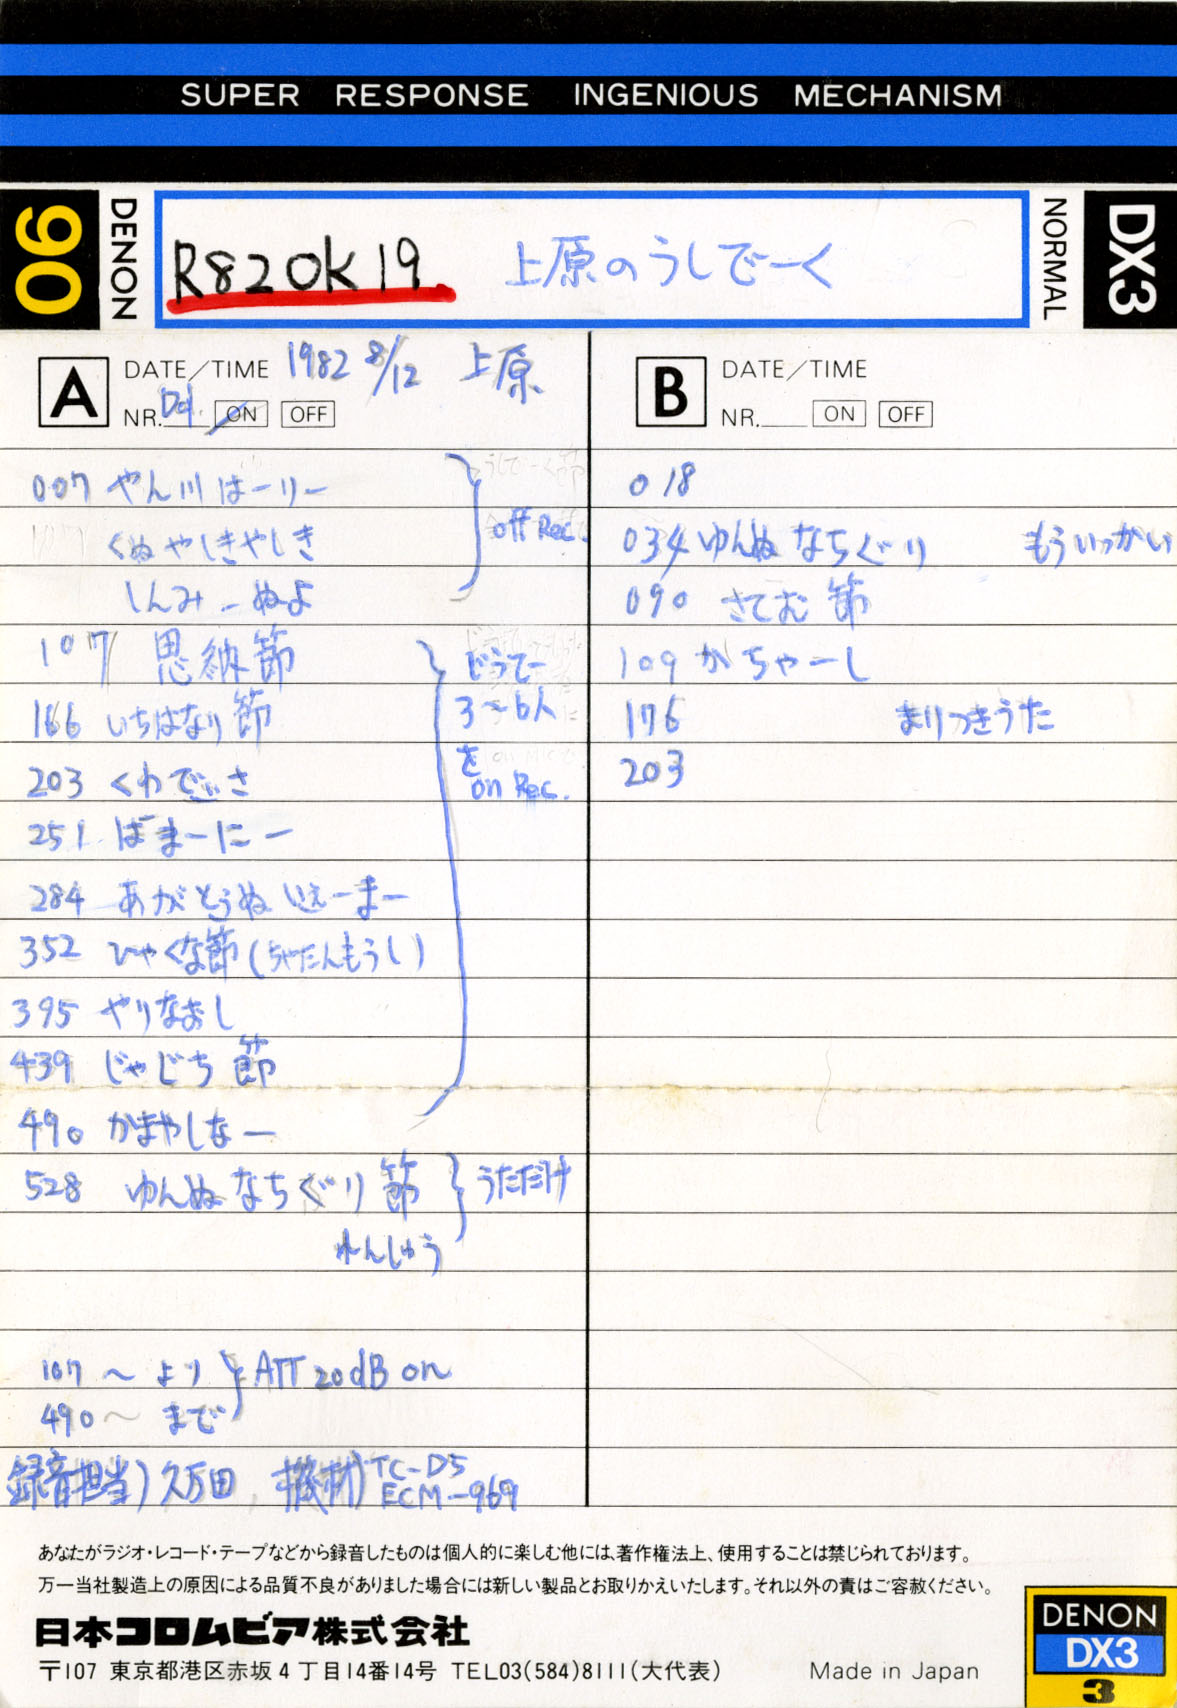 SUPER RESPONSE INGENIOUS MECHANISM
90
DENON
R820K19 上原のうしでーく
NORMAL
DX3
A
DATE/TIME 1982 8/12 上原
NR. Dol. ON OFF
007 やん川はーりー
くぬやしきやしき
off Rec
しんみーぬよ
107 恩納節
どうてー
166 いちはなり節
3〜6人
203 くわでぃさ
を
on Rec.
251 ばまーにー
284 あがとうぬいぇーまー
352 ひゃくな節(ちゃたんもうし)
395 やりなおし
439 じゃじち節
490 かまやしなー
528 ゆんぬなちぐり節 うただけ
れんしゅう
107〜より ATT 20dB on
490〜まで
録音担当)久万田、機材)TC-D5
ECM-969
B
DATE/TIME
NR. ON OFF
018
034 ゆんぬなちぐり もういっかい
090 さてむ節
109 かちゃーし
176 まりつきうた
203
あなたがラジオ・レコード・テープなどから録音したものは個人的に楽しむ他には、著作権法上、使用することは禁じられております。
万一当社製造上の原因による品質不良がありました場合には新しい製品とお取りかえいたします。それ以外の責はご容赦ください。
日本コロムビア株式会社
〒107 東京都港区赤坂4丁目14番14号 TEL03(584)8111(大代表)
Made in Japan
DENON
DX3
3